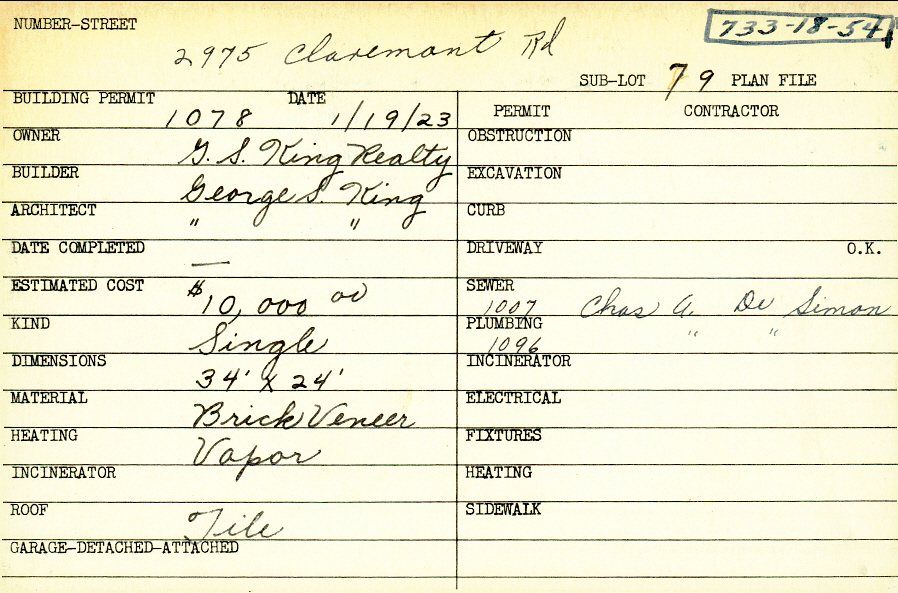 NUMBER-STREET
733-18-54
2975 Claremont Rd
SUB-LOT 79 PLAN FILE
BUILDING PERMIT DATE
1078 1/19/23
PERMIT CONTRACTOR
OWNER G. S. King Realty
OBSTRUCTION
BUILDER George S. King
EXCAVATION
ARCHITECT " "
CURB
DATE COMPLETED —
DRIVEWAY O.K.
ESTIMATED COST $10,000 00
SEWER 1007 Chas A. De Simon
KIND Single
PLUMBING 1096 " "
DIMENSIONS 34' x 24'
INCINERATOR
MATERIAL Brick Veneer
ELECTRICAL
HEATING Vapor
FIXTURES
INCINERATOR
HEATING
ROOF Tile
SIDEWALK
GARAGE-DETACHED-ATTACHED